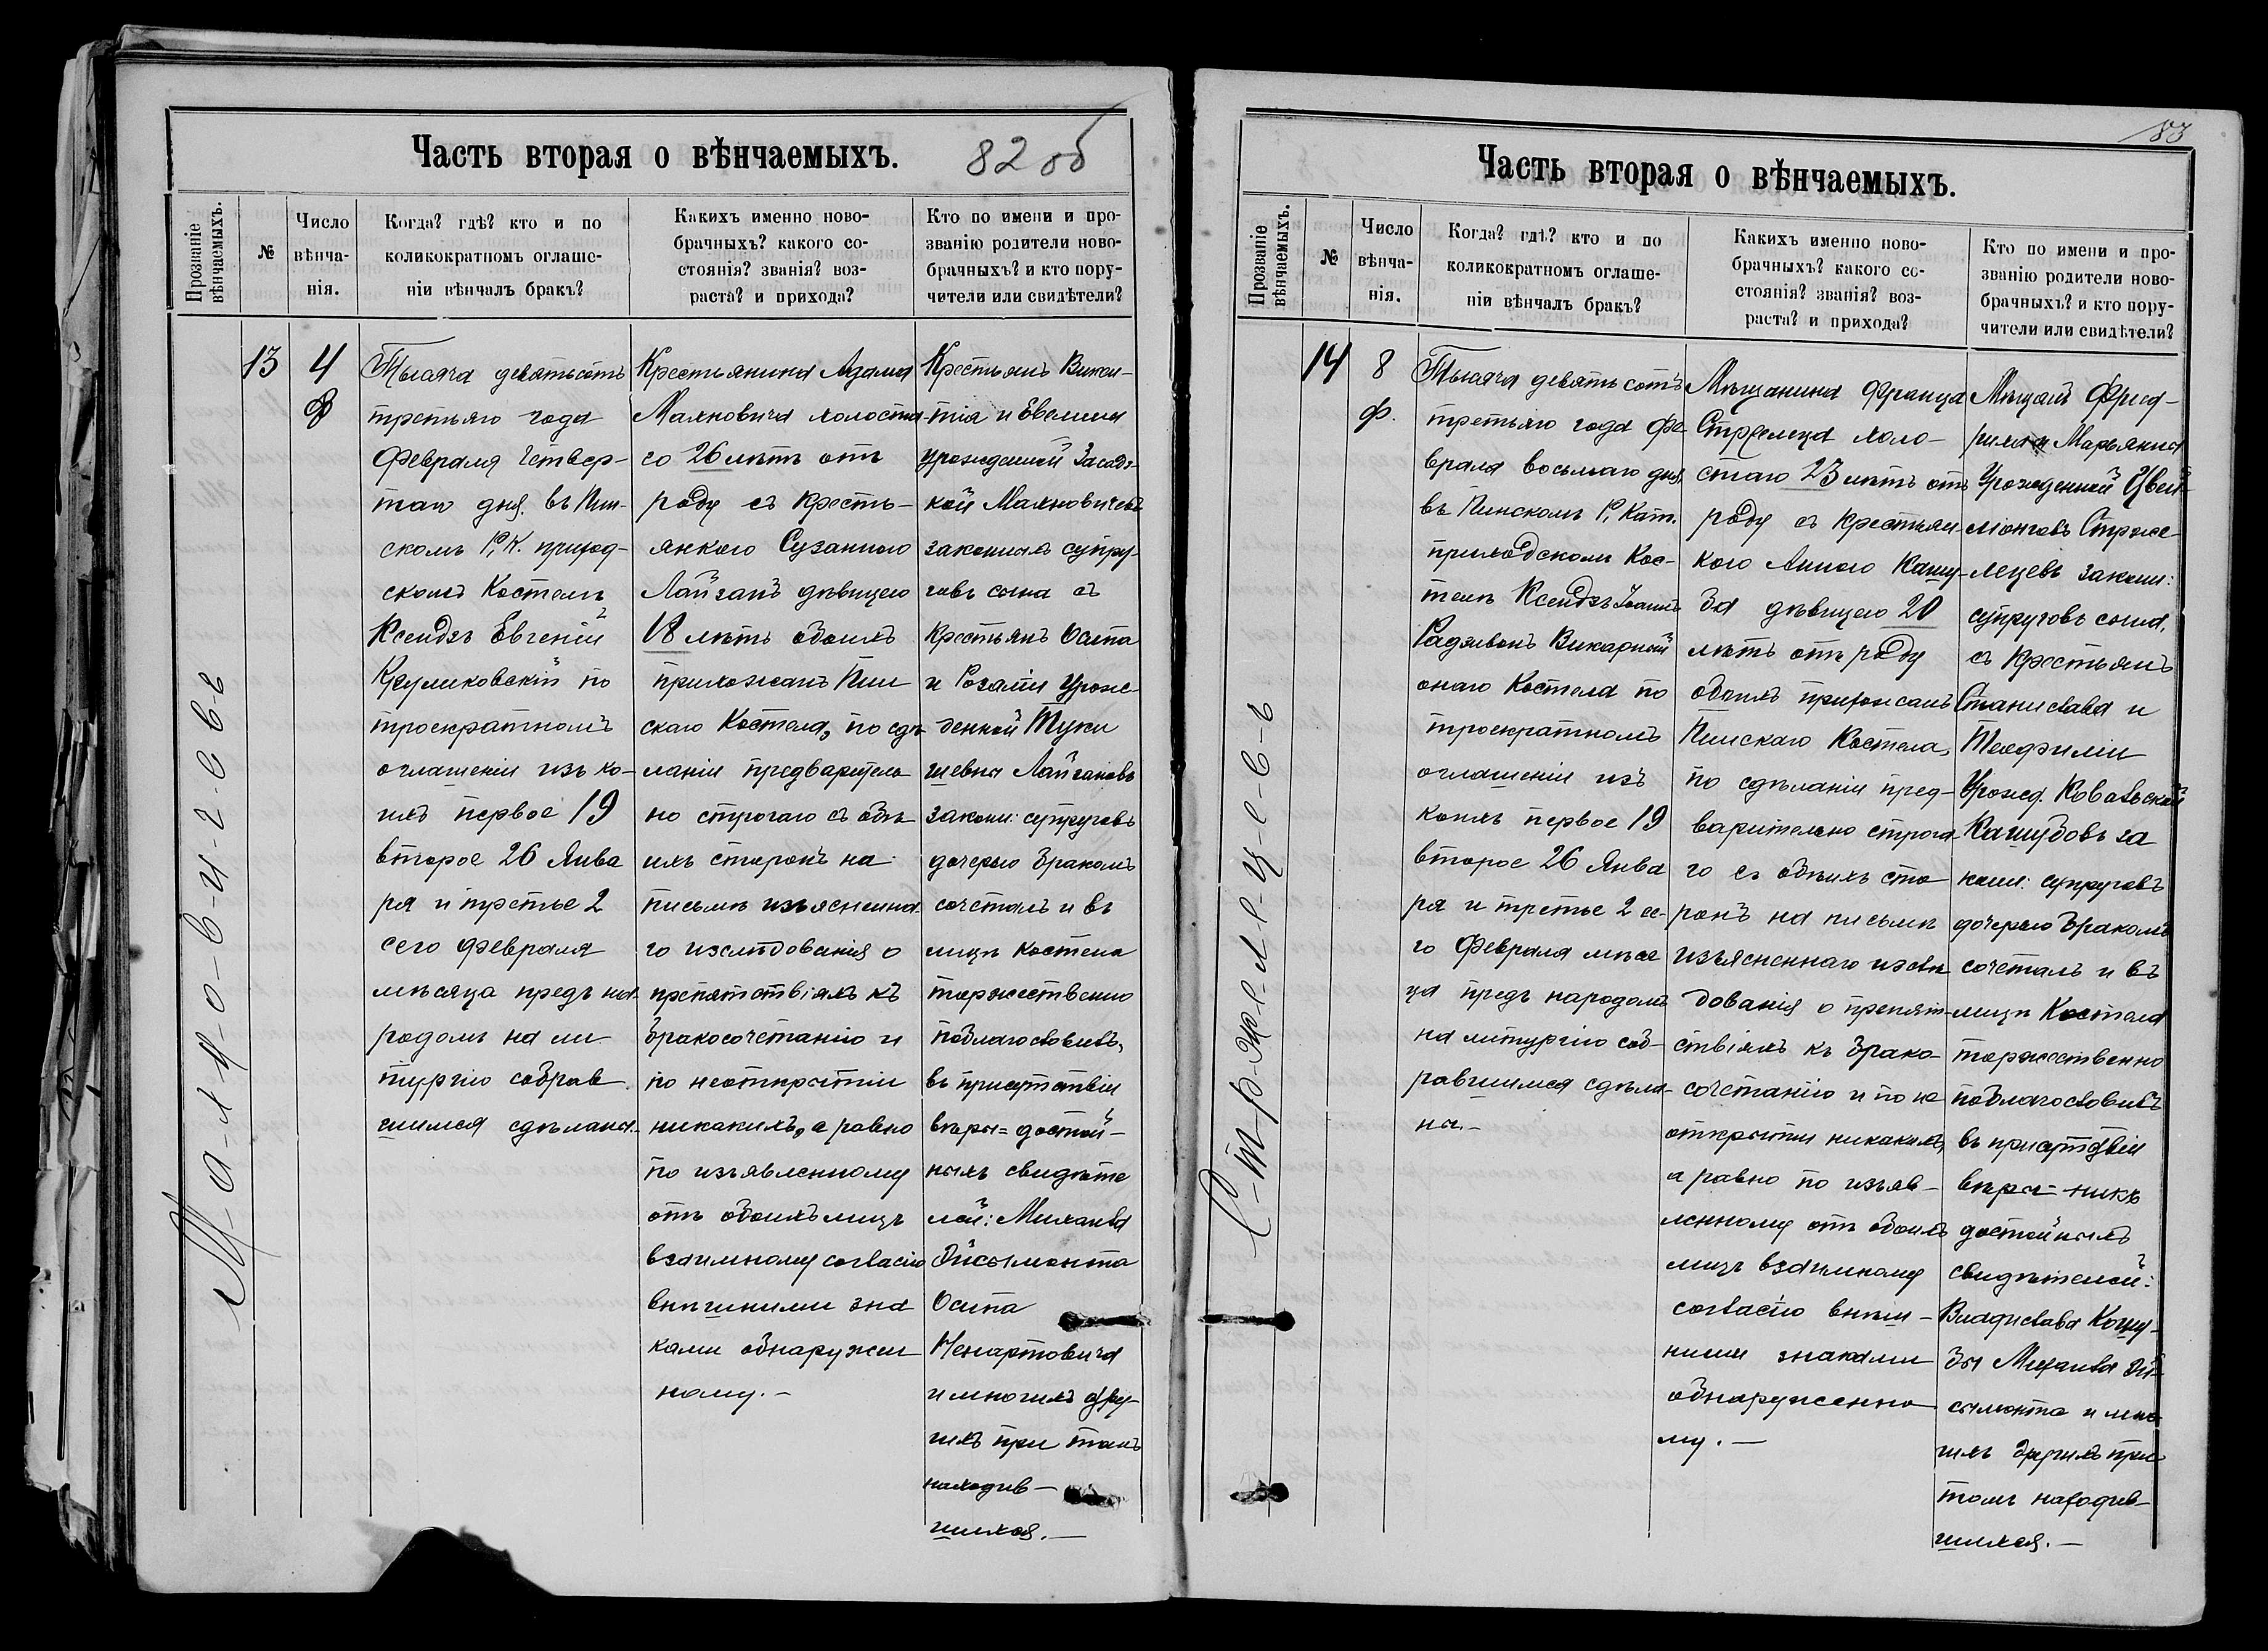 Часть вторая о вѣнчаемыхъ.
82 об
Прозваніе вѣнчаемыхъ.
№
Число вѣнча-
нія.
Когда? гдѣ? кто и по
коликократномъ оглаше-
ніи вѣнчалъ бракъ?
Какихъ именно ново-
брачныхъ? какого со-
стоянія? званія? воз-
раста? и прихода?
Кто по имени и про-
званію родители ново-
брачныхъ? и кто пору-
чители или свидѣтели?
М-а-х-н-о-в-и-ч-е-в-ъ
13
4
Ф
Тысяча девятьсотъ
третьяго года
Февраля четвер-
таго дня. въ Пин-
скомъ Р. К. приход-
скомъ Костелѣ
Ксендзъ Евгеній
Круликовскій по
троекратномъ
оглашеніи изъ ко-
ихъ первое 19
второе 26 Янва
ря и третье 2
сего февраля
мѣсяца предъ на-
родомъ на ли
тургію собрав
шимся сдѣланы.-
Крестьянина Адама
Махновича холоста-
го 26 лѣтъ отъ
роду съ кресть-
янкою Сузанною
Лайганъ дѣвицею
18 лѣтъ обоихъ
прихожанъ Пин
скаго Костела, по сдѣ
ланіи предварител
но строгаго съ обѣ
ихъ сторонъ на
письмѣ изъясненна-
го изслѣдованія о
препятствіяхъ къ
бракосочетанію и
по неоткрытіи
никакихъ, а равно
по изъявленному
отъ обоихъ лицъ
взаимному согласію
внѣшними зна
ками обнаружен
ному.-
Крестьянъ Викен-
тія и Евелины
урожденной
Махновичевъ
законныхъ супру-
говъ сына съ
крестьянъ Осипа
и Розаліи урож-
денной
Лайгановъ
законн: супруговъ
дочерью бракомъ
сочеталъ и въ
лицѣ костела
торжественно
поблагословилъ,
въ присутствіи
вѣры=достой-
ныхъ свидѣте
лей: Михаила
Дисымонта
Осипа
Ненартовича
и многихъ дру-
гихъ при томъ
находив-
шихся.-
83
Часть вторая о вѣнчаемыхъ.
Прозваніе вѣнчаемыхъ.
№
Число
вѣнча-
нія.
Когда? гдѣ? кто и по
коликократномъ оглаше-
ніи вѣнчалъ бракъ?
Какихъ именно ново-
брачныхъ? какого со-
стоянія? званія? воз-
раста? и прихода?
Кто по имени и про-
званію родители ново-
брачныхъ? и кто пору-
чители или свидѣтели?
С-т-р-ж-е-л-е-ц-е-в-ъ
14
8
Ф.
Тысяча девять сотъ
третьяго года фе
враля восьмаго дня,
въ Пинскомъ Р. Кат.
приходскомъ Кос-
телѣ Ксендзъ Іоаннъ
Радзивонъ Викарный
онаго Костела по
троекратномъ
оглашеніи изъ
коихъ первое 19
второе 26 Янва
ря и третье 2 се-
го Февраля мѣся
ца предъ народомъ
на литургію соб-
равшимся сдѣла-
ны.-
Мѣщанина Франца
Стржельца холо-
стаго 23 лѣтъ отъ
роду съ крестьян-
кою Анною Кашу-
ба дѣвицею 20
лѣтъ отъ роду
обоихъ прихожанъ
Пинскаго Костела,
по сдѣланіи пред-
варительно строга
го съ обѣихъ сто
ронъ на письмѣ
изъясненнаго изслѣ
дованія о препят-
ствіяхъ къ брако-
сочетанію и по не
открытіи никакихъ,
а равно по изъяв-
ленному отъ обоихъ
лицъ взаимному
согласію внѣш-
ними знаками
обнаруженно
му.-
Мѣщанъ Фрид-
риха и Марьянны
Урожденной
Стрже-
лецевъ законн:
супруговъ сына,
съ крестьянъ
Станислава и
Теофиліи
Урожд. Ковальской
Кашубовъ за
конн: супруговъ
дочерью бракомъ
сочеталъ и въ
лицѣ Костела
торжественно
поблагословилъ
въ присутствіи
вѣры-
достойныхъ
свидѣтелей:
Владислава Кашу-
бы Михаила Ди-
сымонта и мно
гихъ другихъ при
томъ находив-
шихся.-